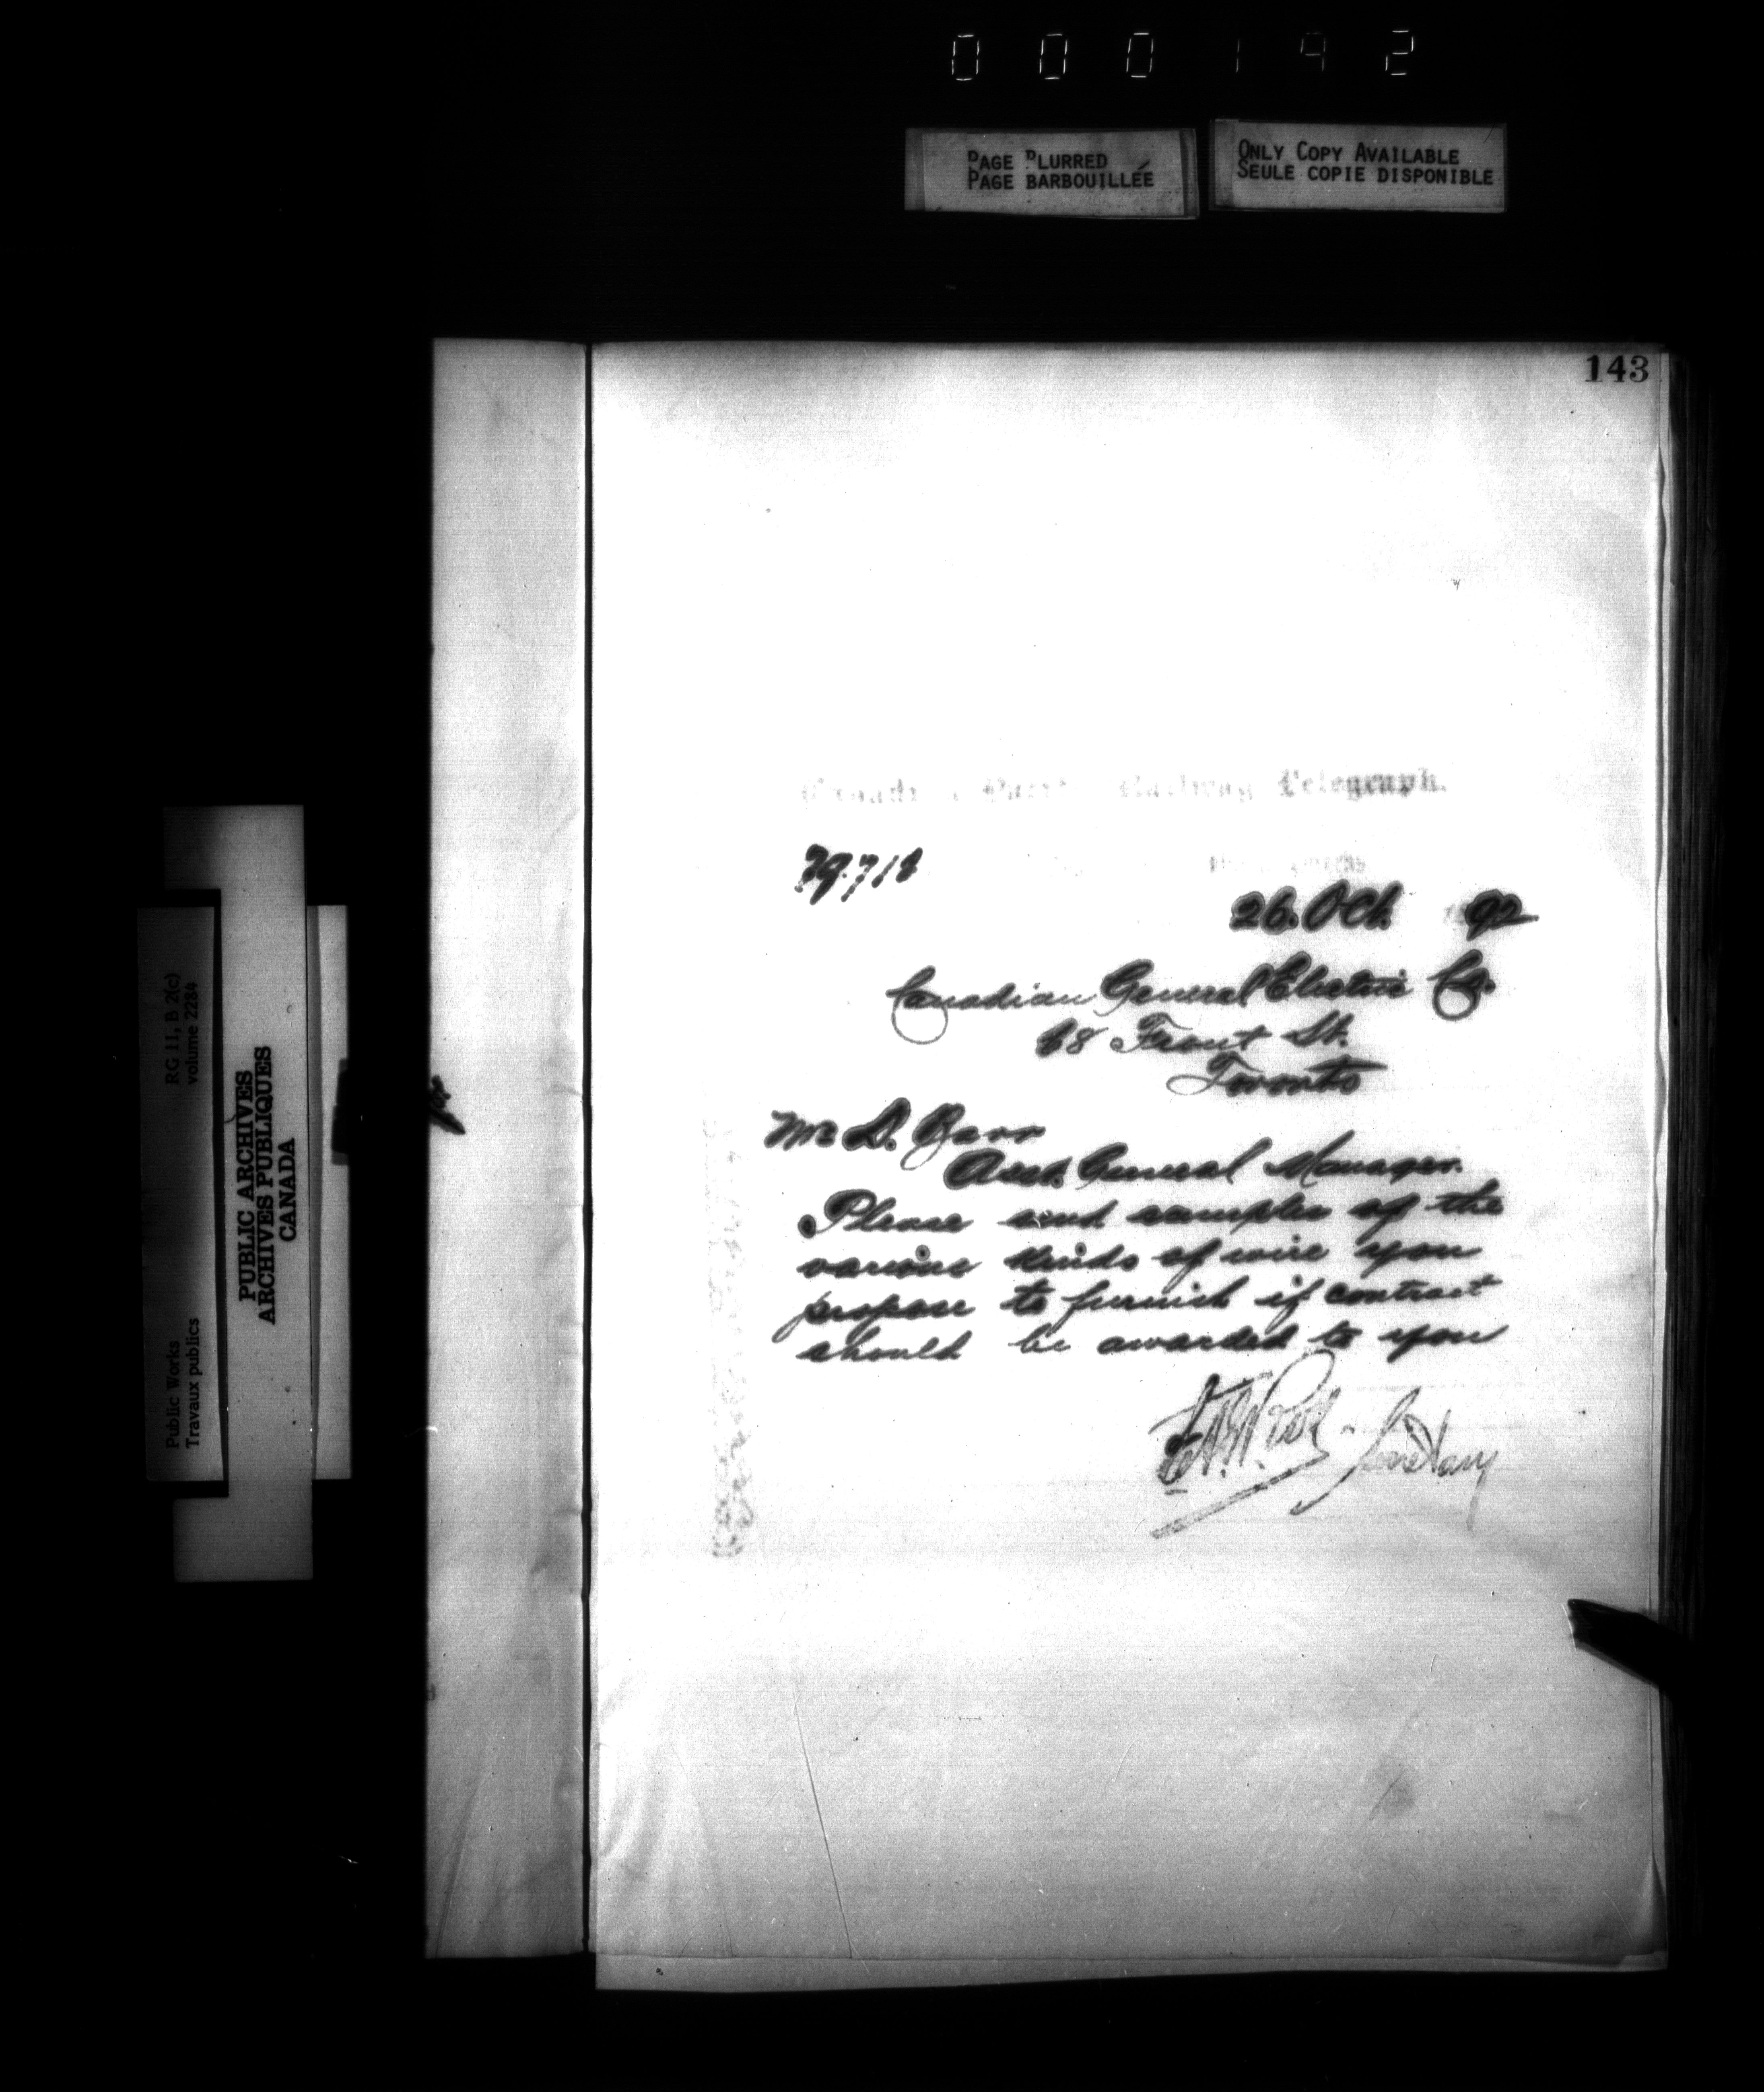 000192
PAGE BLURRED
PAGE BARBOUILLÉE
ONLY COPY AVAILABLE
SEULE COPIE DISPONIBLE
143
Railway Telegraph.
26. Oct. 92
Canadian General Electric Co.
68 Front St.
Toronto
Mr D. Barr
Asst. General Manager.
Please send samples of the
various kinds of wire you
propose to furnish if contract
should be awarded to you
Secretary
RG 11, B 2(c)
volume 2284
Public Works
Travaux publics
PUBLIC ARCHIVES
ARCHIVES PUBLIQUES
CANADA